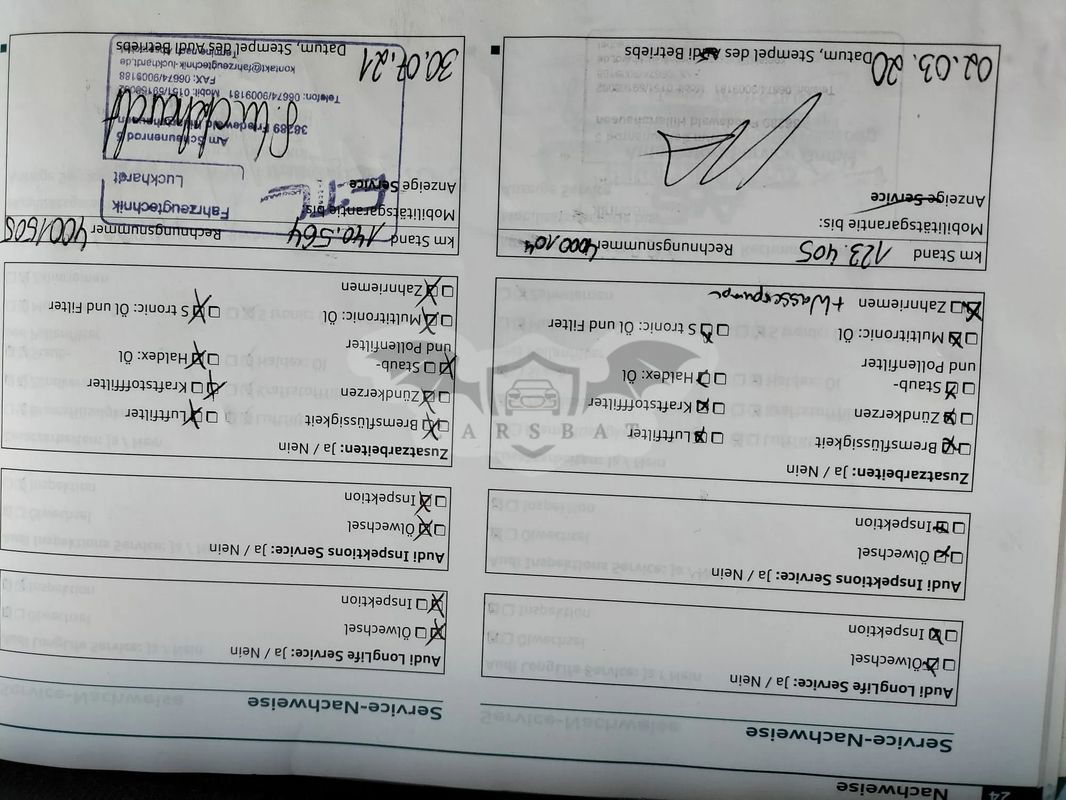 24
Nachweise
Service-Nachweise
Audi LongLife Service: Ja / Nein
Ölwechsel
Inspektion
Audi Inspektions Service: Ja / Nein
Ölwechsel
Inspektion
Zusatzarbeiten: Ja / Nein
Bremsflüssigkeit
Luftfilter
Zündkerzen
Kraftstofffilter
Staub-
und Pollenfilter
Haldex: Öl
Multitronic: Öl
S tronic: Öl und Filter
Zahnriemen + Wasserpumpe
km Stand 123.405 Rechnungsnummer 4000.104
Mobilitätsgarantie bis:
Anzeige Service
Datum, Stempel des Audi Betriebs
02.03.20
Service-Nachweise
Audi LongLife Service: Ja / Nein
Ölwechsel
Inspektion
Audi Inspektions Service: Ja / Nein
Ölwechsel
Inspektion
Zusatzarbeiten: Ja / Nein
Bremsflüssigkeit
Luftfilter
Zündkerzen
Kraftstofffilter
Staub-
und Pollenfilter
Haldex: Öl
Multitronic: Öl
S tronic: Öl und Filter
Zahnriemen
km Stand 140.564 Rechnungsnummer 4001505
Mobilitätsgarantie bis:
Anzeige Service
Fahrzeugtechnik
Luckhardt
Am Scheunenrod 5
36289 Friedewald
Telefon: 06674/9009181
FAX: 06674/9009188
kontakt@fahrzeugtechnik-luckhardt.de
Datum, Stempel des Audi Betriebs
30.07.21
CARSBAT